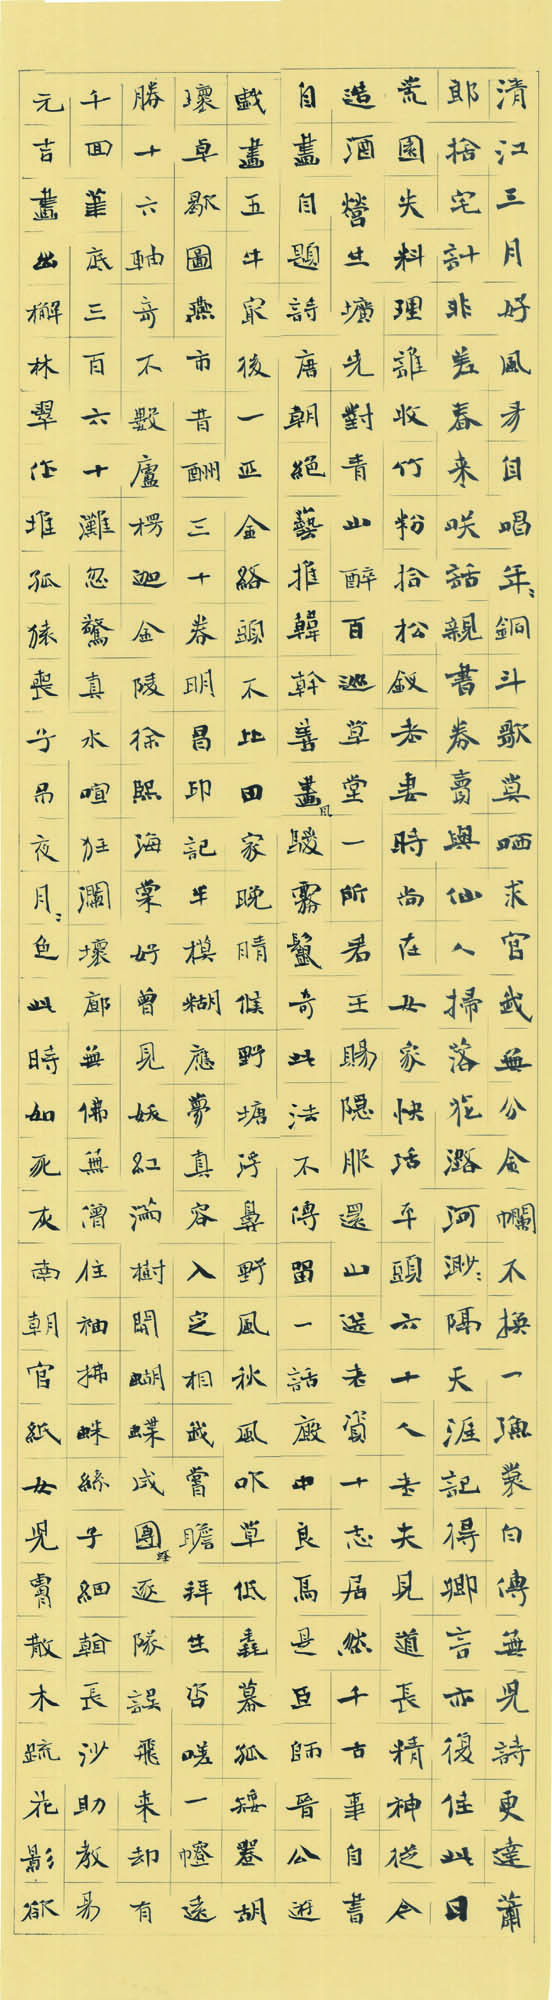 清江三月好風多自唱年〻銅斗歌莫哂求官我無分金襴不換一漁蓑白傅無兒詩更達蕭
郎捨宅計非差春来咲話親書券賣與仙人掃落花潞河渺〻隔天涯記得卿言亦復佳此日
荒園失料理誰收竹粉拾松釵老妻時尚在女家快活平頭六十人老夫見道長精神從今
造酒營生壙先對青山醉百巡草堂一所君王賜隱服還山送老資十志居然千古事自書
自畫自題詩唐朝絕藝推韓幹善畫風騣霧鬣奇此法不傳留一話廄中良馬是臣師晉公遊
戲畫五牛最後一匹金絡頭不比田家晚晴候野塘浮鼻野風秋風吹草低毳幕孤矮卷胡
瓌卓歇圖燕市昔酬三十券明昌印記半模糊應夢真容入定相我嘗瞻拜生咨嗟一幢遠
勝十六軸奇不數盧楞迦金陵徐熙海棠好曾見妖紅滿樹開蝴蝶成團蜂逐隊誤飛来却有
千回筆底三百六十灘忽驚真水喧狂瀾壞廊無佛無僧住袖拂蛛絲子細看長沙助教易
元吉畫出槲林翠作堆孤猿喪子吊夜月〻色此時如死灰南朝官紙女兒膚散木疏花影欲